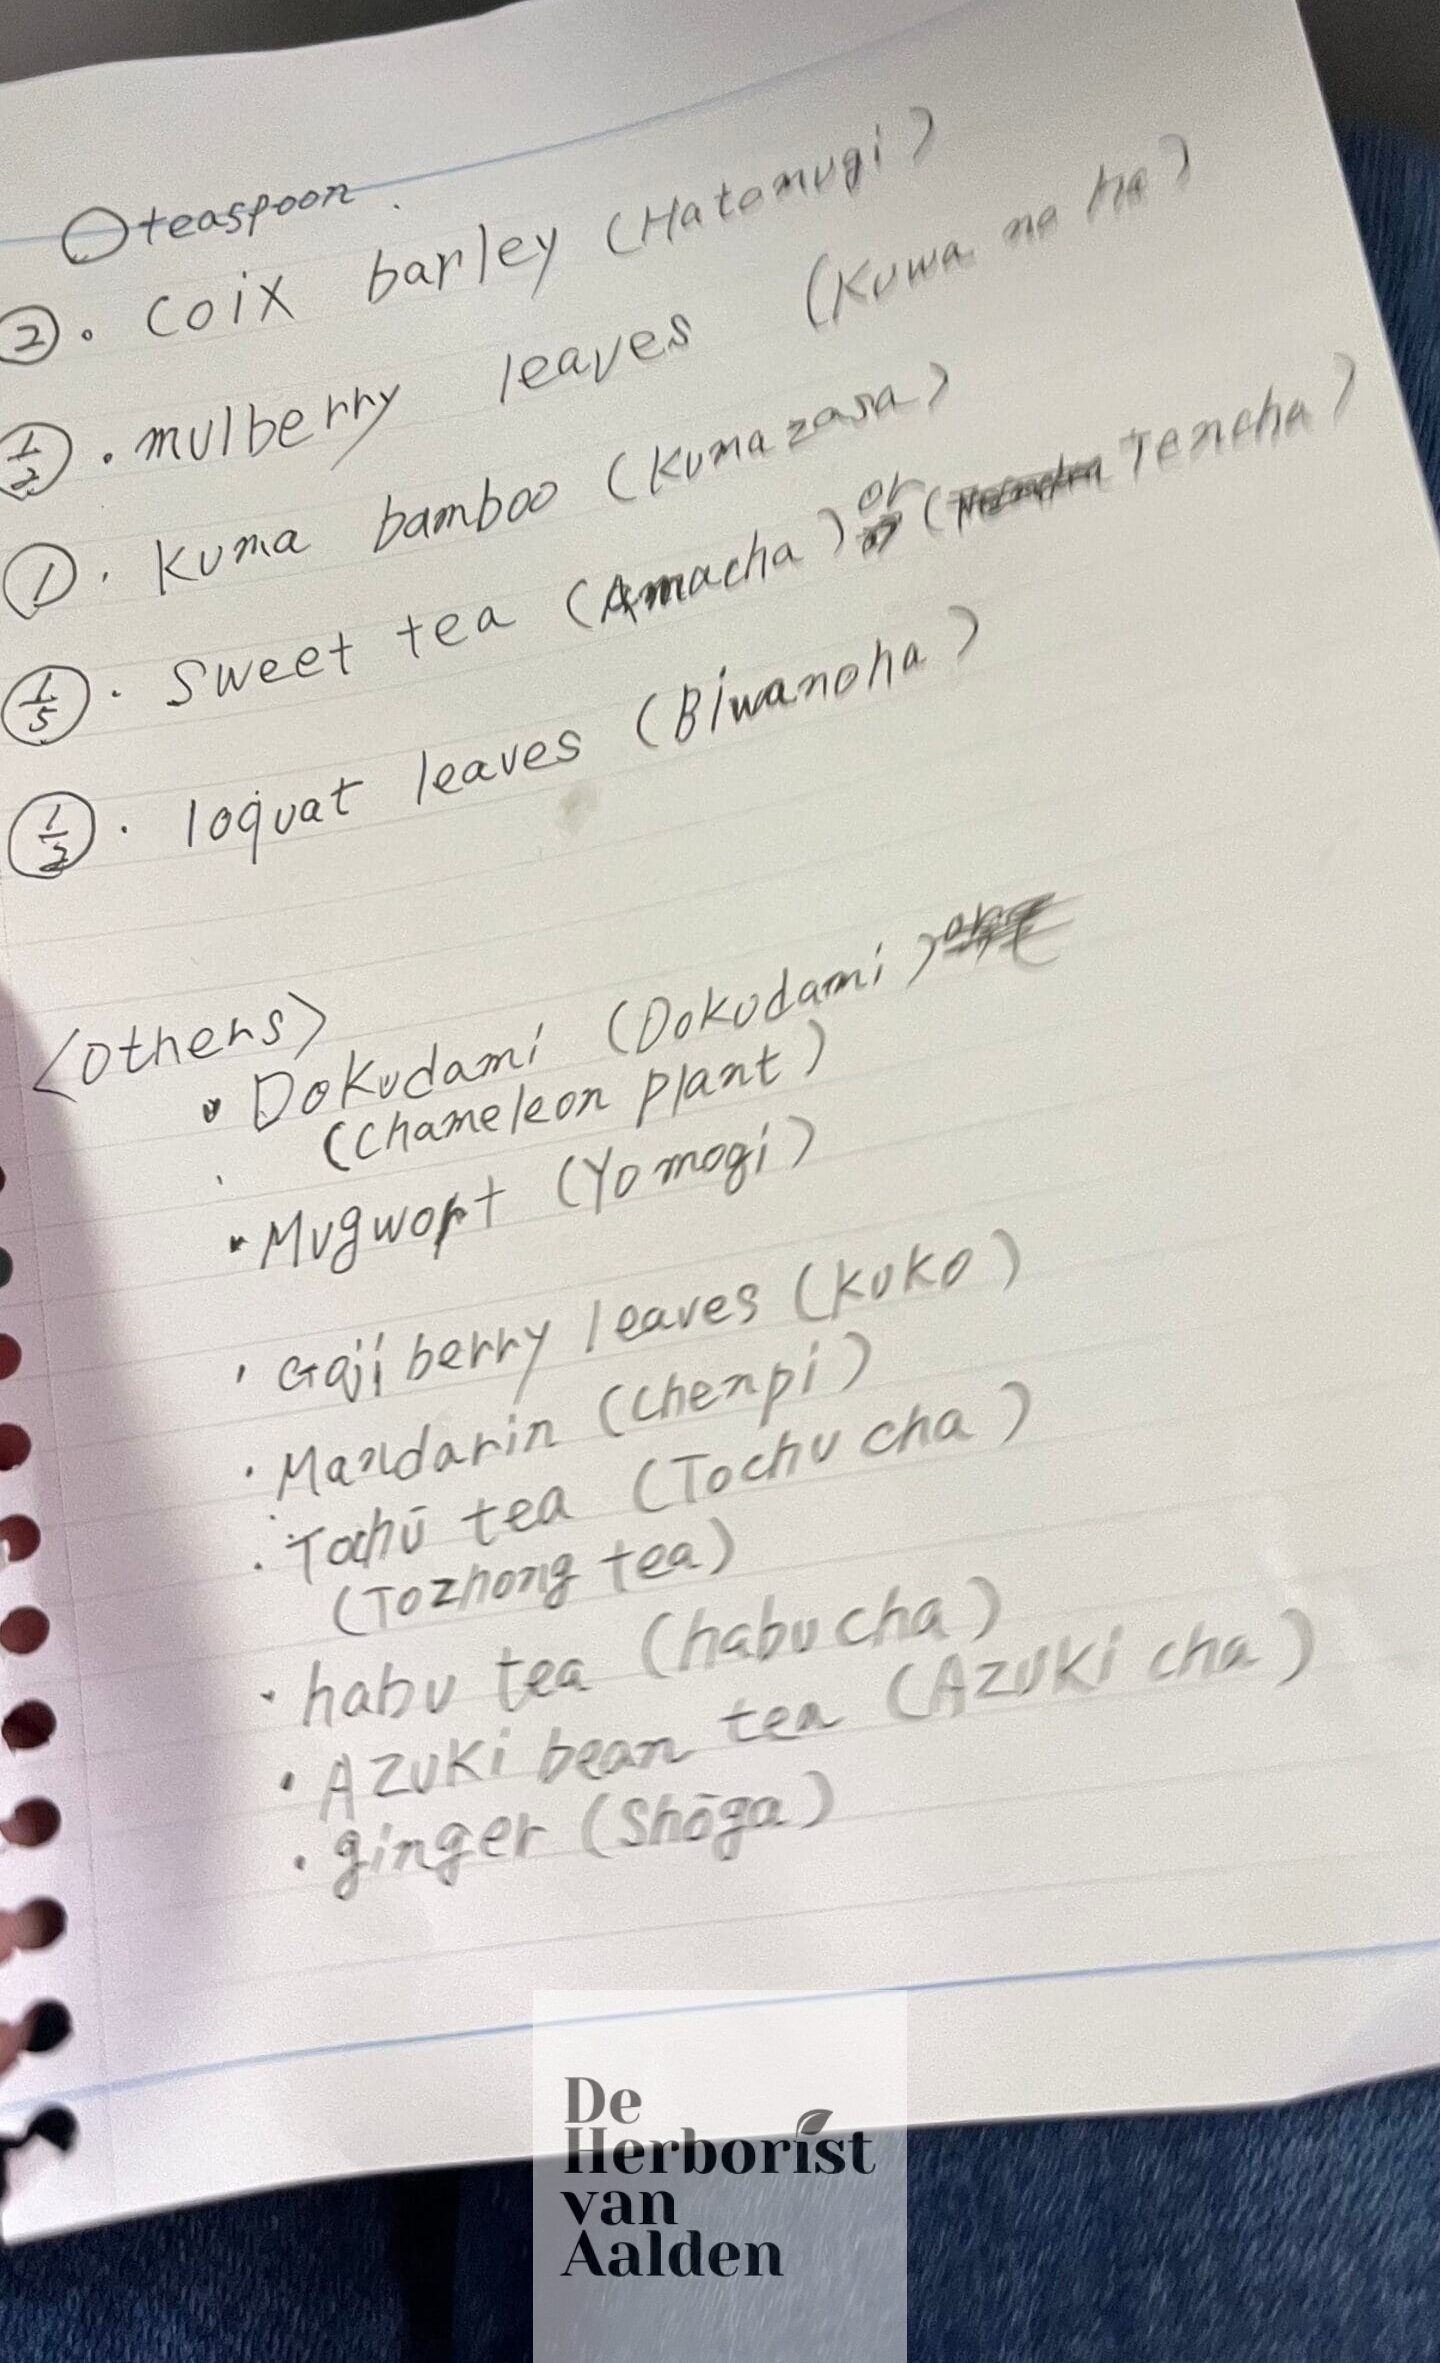 ○ teaspoon.
② · Coix barley (Hatomugi)
½ · mulberry leaves (Kuwa no ha)
① · Kuma bamboo (Kumazasa)
⅕ · Sweet tea (Amacha) or (Tencha)
½ · loquat leaves (Biwanoha)
<Others>
• Dokudami (Dokudami)
(Chameleon plant)
• Mugwort (Yomogi)
· Goji berry leaves (Kuko)
· Mandarin (Chenpi)
· Tochū tea (Tochu cha)
(Tozhong tea)
· habu tea (habu cha)
· AZUKi bean tea (AZUKi cha)
· ginger (Shōga)
De
Herborist
van
Aalden